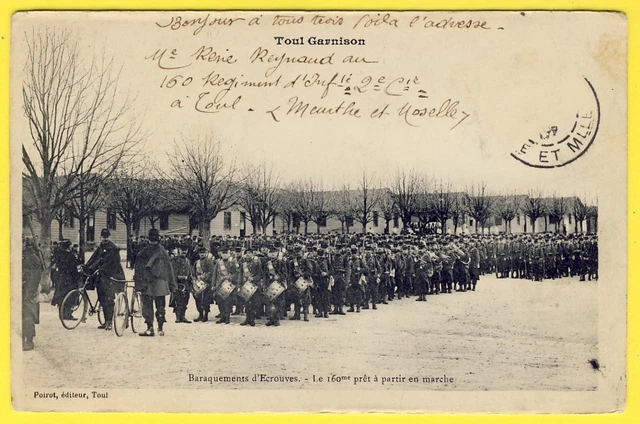 Bonjour à tous trois voila l'adresse.
Toul Garnison
Mr René Reynaud au
160 Regiment d'Infie 2e Cie
à Toul - (Meurthe et Moselle)
E ET MLLE
Baraquements d'Ecrouves. - Le 160me prêt à partir en marche
Poirot, éditeur, Toul